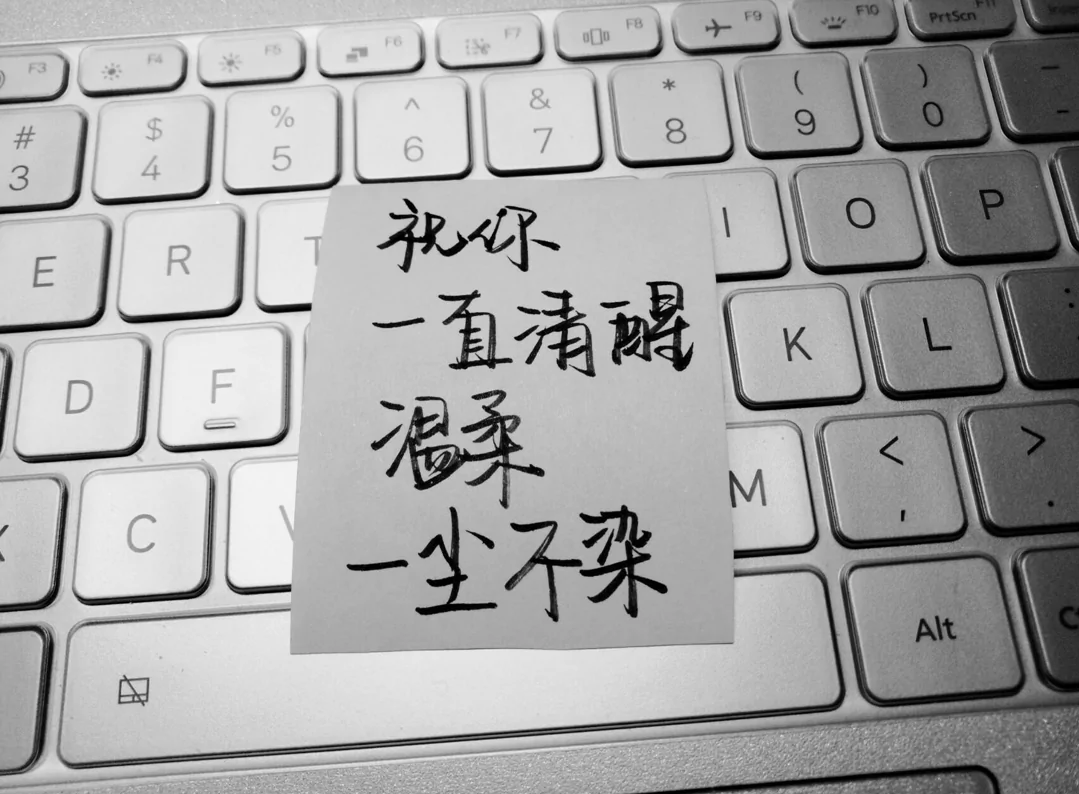 F3 F4 F5 F6 F7 F8 F9 F10 PrtScn F11
# $ % ^ & * ( ) _
3 4 5 6 7 8 9 0 -
E R T I O P
D F K L :
X C V M < >
, .
祝你
一直清醒
温柔
一尘不染
Alt Ct